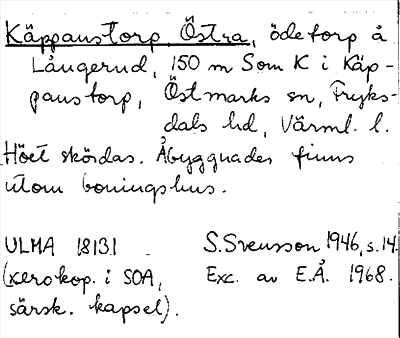 Käppanstorp Östra, ödetorp å
Långerud, 150 m Som K i Käp-
panstorp, Östmarks sn, Fryks-
dals hd, Värml. l.
Höet skördas. Åbyggnader finns
utom boningshus.
ULMA 18131 S. Svensson 1946, s. 14.
(xerokop. i SOA, Exc. av E.Å. 1968.
särsk. kapsel).